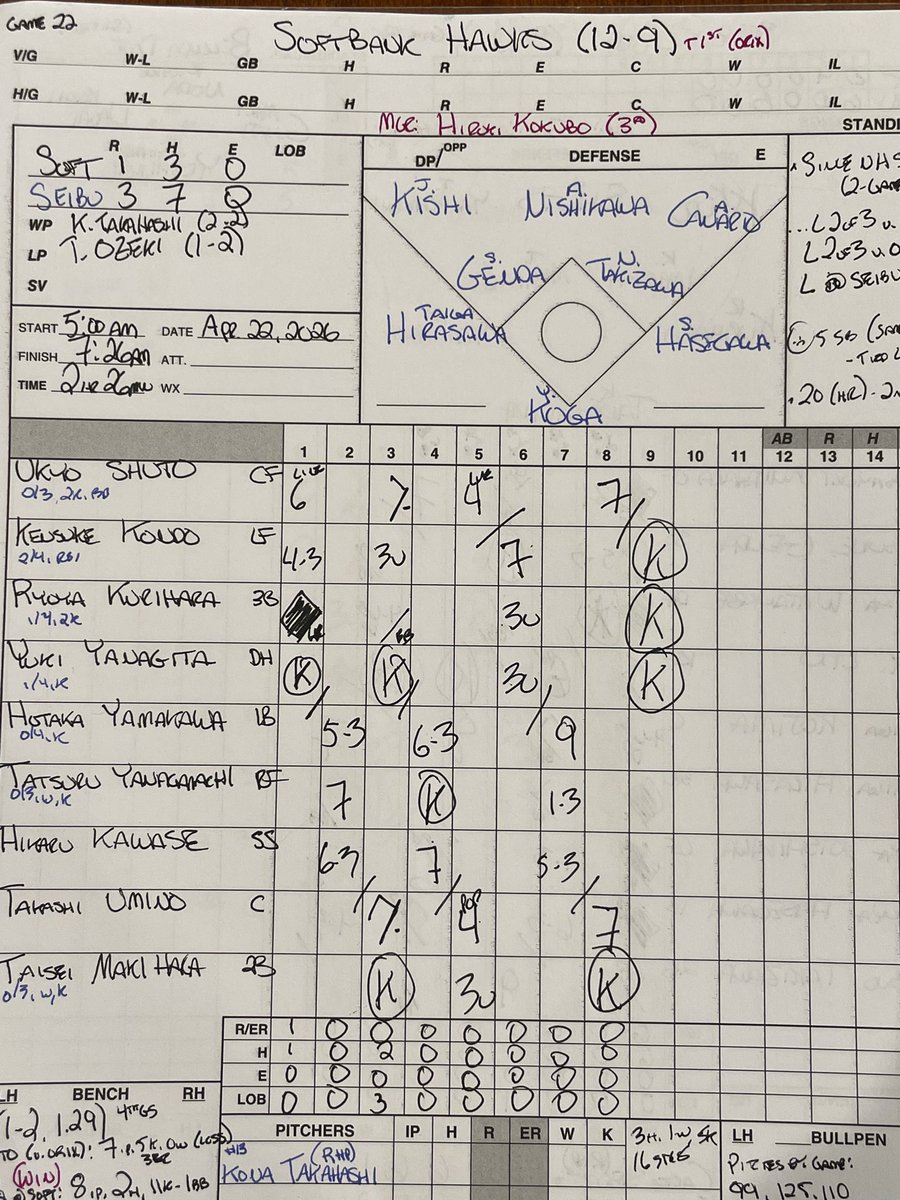 GAME 22
SOFTBANK HAWKS (12-9) T1ST (ORIX)
V/G W-L GB H R E C W IL
H/G W-L GB H R E C W IL
MGR: HIROKI KOKUBO (3RD)
STANDI
R H E LOB
SOFT 1 3 0
SEIBU 3 7 0
WP K. TAKAHASHI (2-2)
LP T. OZEKI (1-2)
SV
START 5:00AM DATE APR 22, 2026
FINISH 7:26AM ATT.
TIME 2HR 26MIN WX
DP/OPP DEFENSE E
J. KISHI
A. NISHIKAWA
A. CANARIO
S. GENDA
N. TAKIZAWA
TAIGA HIRASAWA
S. HASEGAWA
Y. KOGA
(2-GAM
... L 2 OF 3 V.
L 2 OF 3 V. O
L @ SEIBU
5 SB (SAM
- TIED
. 20 (HR) - 2N
1 2 3 4 5 6 7 8 9 10 11 12 13 14
AB R H
UKYO SHUTO CF 6 7 4 7
0/3, 2K, BB
KENSUKE KONDO LF 4-3 3U 7 K
2/4, RBI
RYOYA KURIHARA 3B 3U K
1/4, 2K
YUKI YANAGITA DH K K 3U K
1/4, K
HOTAKA YAMAKAWA 1B 5-3 6-3 9
0/4, K
TATSURU YANAGIMACHI RF 7 K 1-3
0/3, W, K
HIKARU KAWASE SS 6-3 7 5-3
TAKASHI UMINO C 7 POP 4 7
TAISEI MAKIHARA 2B K 3U K
0/3, W, K
R/ER 1 0 0 0 0 0 0 0
H 1 0 2 0 0 0 0 0
E 0 0 0 0 0 0 0 0
LOB 0 0 3 0 0 0 0 0
LH BENCH RH
(1-2, 1.29) 4TH GS
(WIN)
8 IP, 2H, 11K-1BB
PITCHERS IP H R ER W K
#13 (RHP)
KONA TAKAHASHI
3H, 1W, 8K
LH BULLPEN
PITCHES BY GAME:
99, 125, 110